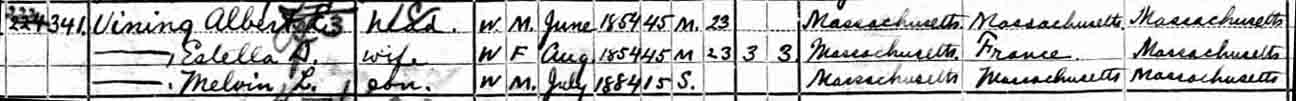 224 341. Vining Albert Head. W. M. June 1854 45 M. 23 Massachusetts. Massachusetts. Massachusetts
——, Estella D. wife W F Aug. 1854 45 M 23 3 3 Massachusetts. France. Massachusetts
——. Melvin L. son. W M. July 1884 15 S. Massachusetts Massachusetts Massachusetts